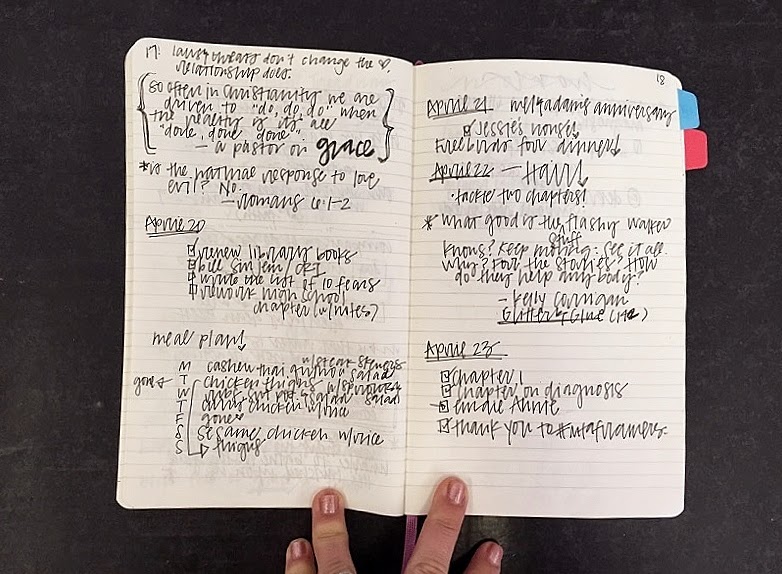 17. lousy sweats don't change the ♡,
relationship does.
so often in Christianity we are
driven to "do, do, do" when
the reality is its all
"done, done, done".
— a pastor on grace
* is the natural response to love
evil? No.
— romans 6:1-2
April 20
renew library books
write the list of 10 fears
rework high school
chapter (w/notes)
meal plan!
w/steak skewers
M cashew thai quinoa salad
goals T chicken thighs
W
T curry chicken w/rice
F gone
S sesame chicken w/rice
S thighs
18
April 21 mel & adam's anniversary
Jessie's house!
freebirds for dinner!
April 22 — Hair!
· tackle two chapters!
* what good is the flashy water
stuff
knows? Keep moving. See it all.
why? For the stories? How
do they help any body?
— Kelly Corrigan
Glitter & Glue (142)
April 23
chapter 1
chapter on diagnosis
emdie Annie
thank you to